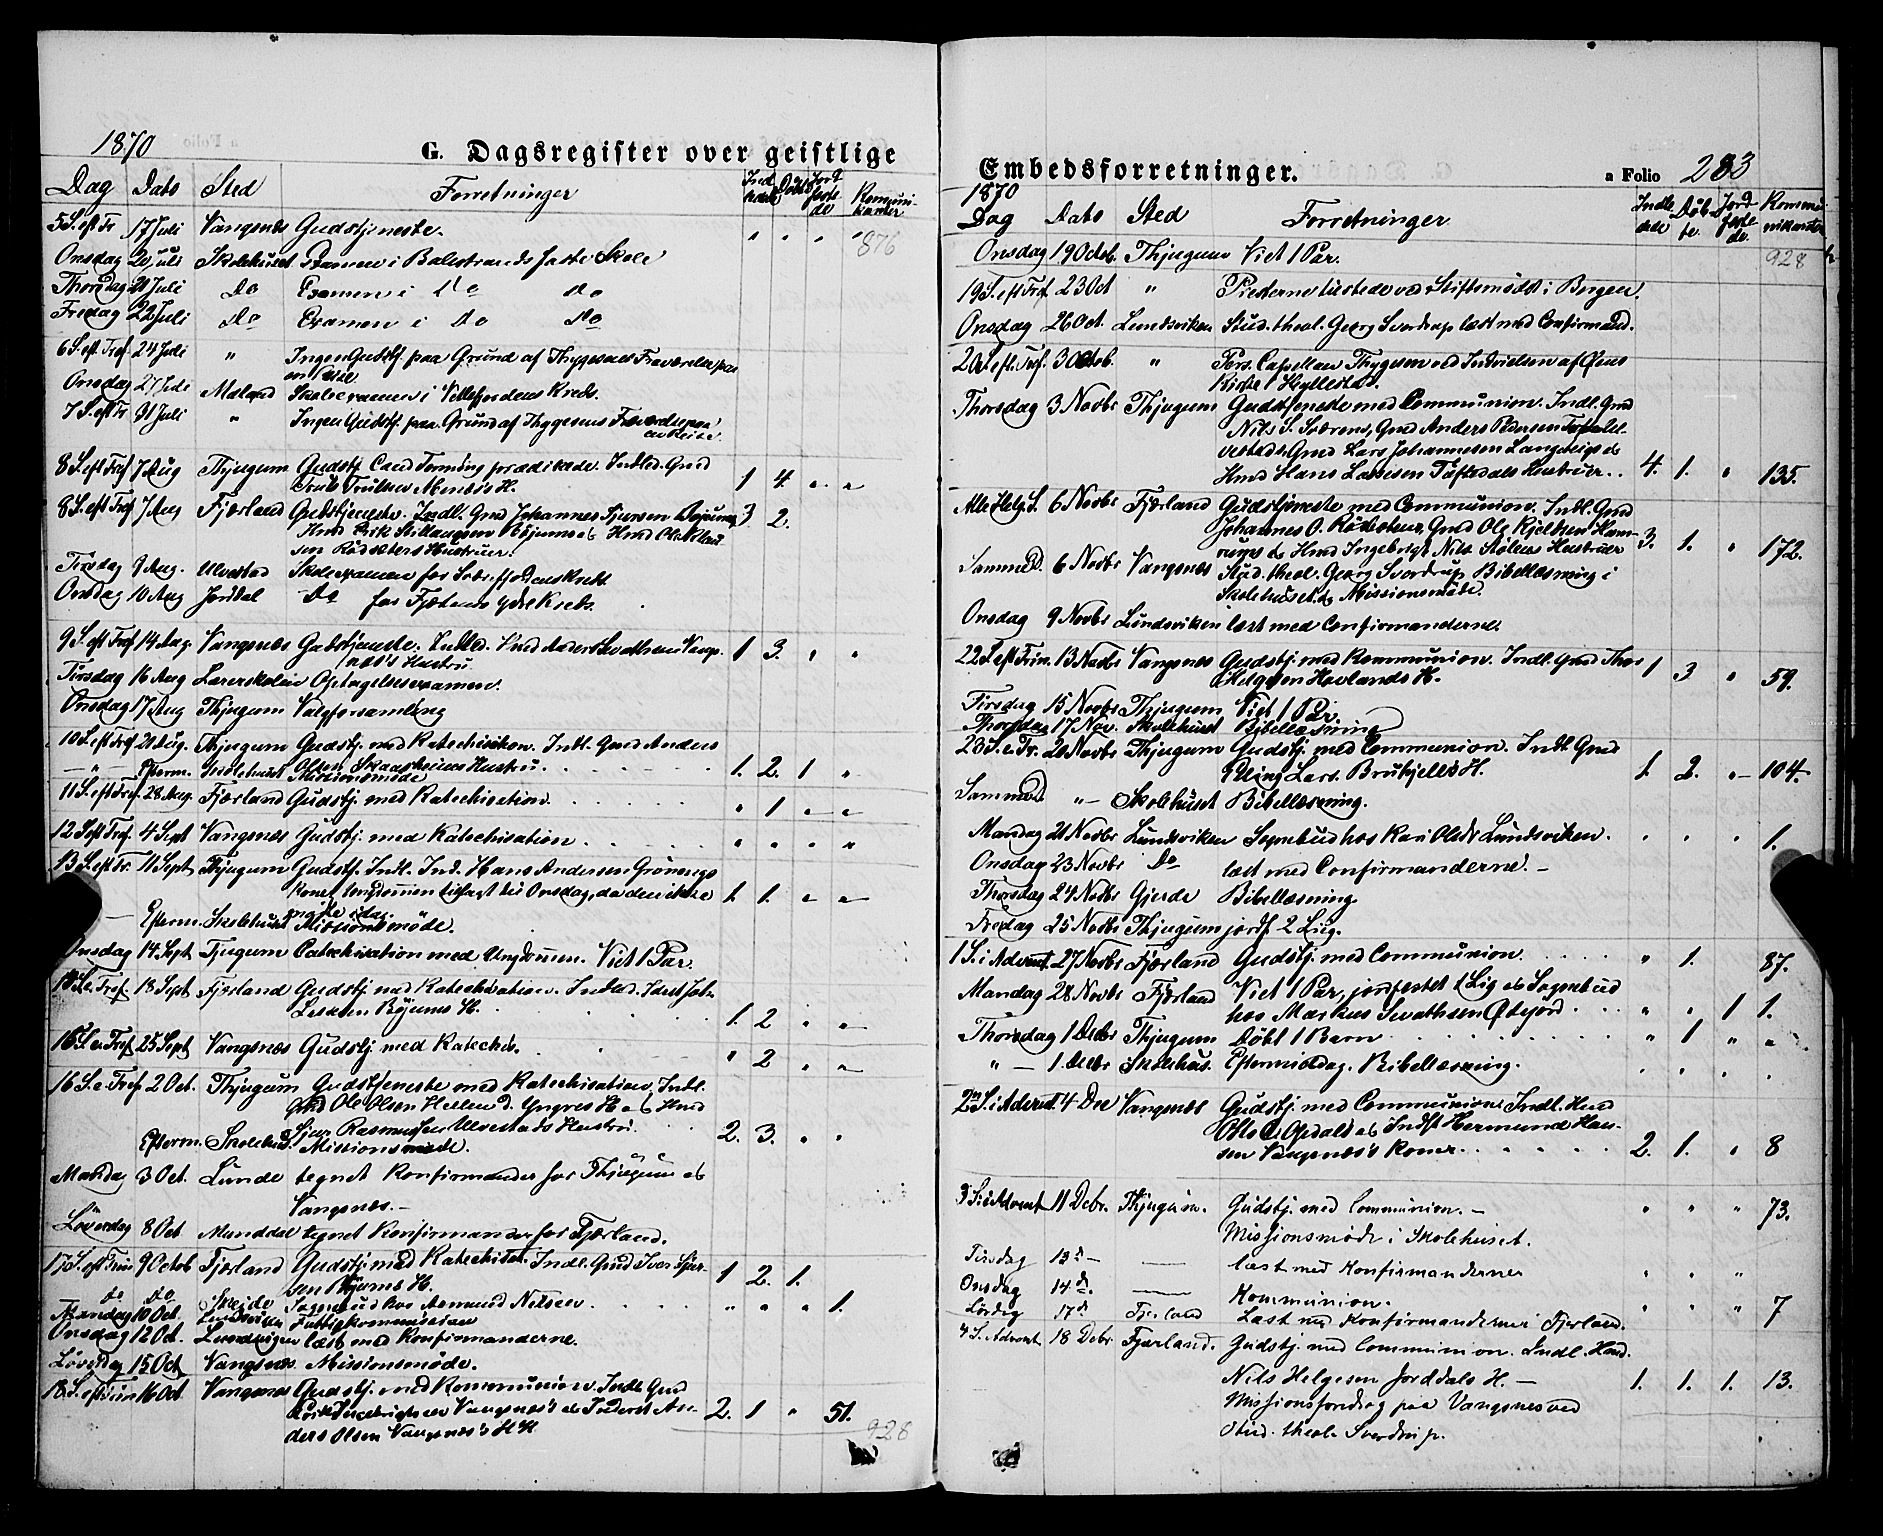 1870
G. Dagsregister over geistlige
Dag Dato Sted Forretninger Indledede Døbte Jordfæstede Kommunikanter
5 S. eft Tr 17 Juli Vangsnæs Gudstjeneste. " " " " 876
Onsdag 20 Juli Skolehuset Examen i Balestrands faste Skole
Thorsdag 21 Juli Do Examen i Do Do
Fredag 22 Juli Do Examen i Do Do
6 S. eft. Tref. 24 Juli " Ingen Gudstj. paa Grund af Thygesens Fraværelse paa
en Reise
Onsdag 27 Juli Mæland Skoleexamen i Vetlefjordens Kreds.
7 S. eft Tr. 31 Juli " Ingen Gudstj. paa Grund af Thygesens Fraværelse paa
en Reise.
8 S. eft Tref 7 Aug Thjugum Gudstj. Cand prædikede. Indled. Gmd
H. 1 4. " "
8 S. eft Tref 7 Aug Fjærland Gudstjeneste. Indl. Gmd Johannes Sjursen Bøjums 3 2.
Hmd Erik Bøjums & Hmd Ole
sen Rødsæters Hustruer.
Tirsdag 9 Aug. Ulvestad Skoleexamen for Kreds
Onsdag 10 Aug Jordal Do for Kreds.
9 S. eft Tref 14 Aug. Vangsnæs Gudstjeneste. Indled. Vangs-
næs's Hustru 1 3. " "
Tirsdag 16 Aug Lærerskolen Optagelsesexamen.
Onsdag 17 Aug Thjugum Valgforsamling
10 S. eft Tref 21 Aug. Thjugum Gudstj. med Katechisation. Indl. Gmd Anders
Olsen Hustru. 1. 2. 1 "
— " — Efterm. Skolehuset Missionsmøde
11 S. eft Tref. 28 Aug. Fjærland Gudstj. med Katechisation. " 1 " "
12 S. eft Tref. 4 Sept Vangsnæs Gudstj. med Katechisation. " " " "
13 S. eft Tr. 11 Sept Thjugum Gudstj. Indl. Ind. Hans Andersen Grønengs
Kone. Ungdommen tilsagt til Onsdag, da den ikke 1. 1. " "
mødte idag.
— Efterm. Skolehuset Missionsmøde.
Onsdag 14 Sept Tjugum Catechisation med Ungdommen. Viet 1 Par.
S. e. Tref 18 Sept Fjærland Gudstj. med Katechisation. Indled. Joh.
Bøjums H. 1. 2 " "
S. e. Tref 25 Sept Vangsnæs Gudstj. med Katechis. " 2 " "
16 S. e. Tref 2 Oct. Thjugum Gudstjeneste med Katechisation. Indl.
Gmd Ole Olsen H & Hmd
Sjur Rasmussen Ulvestads Hustru. 2. 3. " "
Efterm. Skolehus. Missionsmøde.
Mandag 3 Oct. Lunde tegnet Konfirmander for Thjugum &
Vangsnæs.—
Løverdag 8 Oct Mundal tegnet Konfirmander for Fjærland.
17 S. eft Trin 9 Octob Fjærland Gudstj. med Katechisat. Indl. Gmd Iver Sjur-
sen Bøjums H. 1 2. 1.
Do Do Skeide Sognebud hos Aamund Nilssen " " " 1.
Mandag 10 Oct. Lundsviken Fattigkommission
Onsdag 12 Oct. Lundsviken læst med Konfirmanderne.
Løverdag 15 Oct Vangsnæs Missionsmøde.
18 S. eft Trin 16 Oct. Vangsnæs Gudstj. med Kommunion. Indl. Gmd
Vangsnæs's & Inderst An-
ders Olsen Vangsnæs's HH. 2. 1 " 51.
928
Embedsforretninger. a Folio 283
1870
Dag Dato Sted Forretninger Indledede Døbte Jordfæstede Kommunikanter
Onsdag 19 Octob. Thjugum Viet 1 Par. 928
19 S. eft Tref. 23 Oct " Presterne tilstede ved Stiftsmødet i Bergen.
Onsdag 26 Oct. Lundsviken Stud. theol. Georg Sverdrup læst med Confirmand.
20 S. eft. Tref. 30 Octob. " Pers. Capellan Thygesen ved Indvielsen af Øens
Kirke i Hyllestad.
Thorsdag 3 Novbr Thjugum Gudstjeneste med Communion. Indl. Gmd
Nils S. Sværens, Gmd Anders Pedersen
Gmd Lars Johannesen &
Hmd Hans Larsen Tuftedals Hustruer. 4. 1. " 135.
Alle Helg S. 6 Novbr. Fjærland Gudstjeneste med Communion. Indl. Gmd
Johannes O. Rødsæters, Gmd Ole Kjeldsen Ham-
rums & Hmd Ingebrigt Nils. Stølens Hustruer 3. 1. " 172.
Sammed. 6 Novbr Vangsnæs Stud. theol. Georg Sverdrup Bibellæsning i
Skolehuset & Missionsmøde.
Onsdag 9 Novbr Lundsviken læst med Confirmanderne.
22 S. eft Trin. 13 Novbr Vangsnæs Gudstj. med Kommunion. Indl. Gmd Thos
Helgesen Hovlands H. 1 3 " 59.
Tirsdag 15 Novbr Thjugum Viet 1 Par.
Thorsdag 17 Nov. Skolehuset Bibellæsning
23 S. e. Tr. 20 Novbr Thjugum Gudstj. med Communion. Indl. Gmd
Lars. Brubjells H. 1. 2. " 104.
Sammed " — Skolehuset Bibellæsning.
Mandag 21 Novbr Lundsviken Sognebud hos Kari Olsdr Lundsviken. " " " 1.
Onsdag 23 Novbr Do læst med Confirmanderne. —
Thorsdag 24 Novbr Gjerde Bibellæsning
Fredag 25 Novbr Thjugum jordf 2 Lig.
1 S. i Advent. 27 Novbr Fjærland Gudstj. med Communion. " 1. 87.
Mandag 28 Novbr Fjærland Viet 1 Par, jordfæstet 1 Lig & Sognebud
hos Markus Øbøjord. " " 1 1.
Thorsdag 1 Decbr Thjugum Døbt 1 Barn " 1 " "
" — 1. Decbr Skolehus. Eftermiddag. Bibellæsning.
2n S. i Advent 4 Dec Vangsnæs Gudstj. med Communion Indl. Hmd
Opdals & Indst Hermund Han-
sen Vangsnæs's Koner. 2. 1. " 8
3 S. i Advent 11 Decbr. Thjugum. Gudstj. med Communion. — " " " 73.
Missionsmøde i Skolehuset.
Tirsdag 13d — — læst med Konfirmanderner " " "
Onsdag 14d. — Kommunion. " " " 7
Lørdag 17d Fjerland Læst med Konfirmanderne i Fjerland.
4 S. Advent 18 Decbr. Fjærland. Gudstj. med Communion. Indl. Hmd.
Nils Helgesen Jorddals H. — 1. 1. 1. 13.
Missionsforedrag paa Vangsnes ved
Stud. theol. Sverdrup.